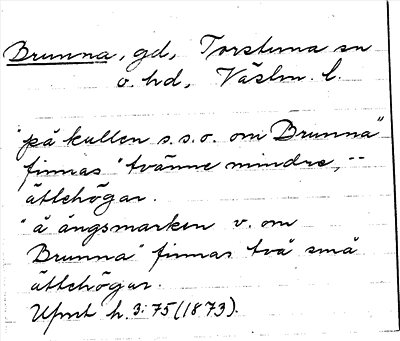 Brunna, gd, Torstuna sn
o. hd, Västm. l.
"på kullen s.s.o. om Brunna"
finnas "tvänne mindre, --
ättehögar.
"å ängsmarken v. om
Brunna" finnas två små
ättehögar.
Upmt h. 3:75 (1873).